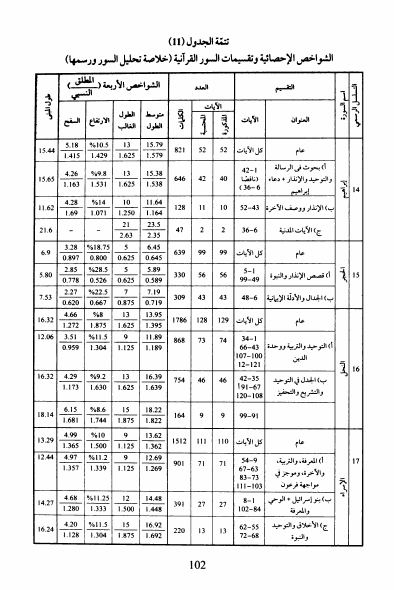 تتمّة الجدول (11)
الشواخص الإحصائية وتقسيمات السور القرآنية (خلاصة تحليل السور ورسمها)
التسلسل الرسمي | اسم السورة | التقسيم | العدد | الشواخص الأربعة (المطلق / النسبي) | طول المتن
العنوان | الآيات | الآيات | الكلمات | متوسط الطول | الطول الغالب | الارتفاع | السفح
المذكورة | المحتسبة
14 | إبراهيم | عام | كل الآيات | 52 | 52 | 821 | 15.79 | 13 | %10.5 | 5.18 | 15.44
1.579 | 1.625 | 1.429 | 1.415
أ) بحوث في الرسالة والتوحيد والإنذار + دعاء إبراهيم | 1–42 (ناقصًا 6–36) | 40 | 42 | 646 | 15.38 | 13 | %9.8 | 4.26 | 15.65
1.538 | 1.625 | 1.531 | 1.163
ب) الإنذار ووصف الآخرة | 43–52 | 10 | 11 | 128 | 11.64 | 10 | %14 | 4.28 | 11.62
1.164 | 1.250 | 1.071 | 1.69
ج) الآيات المدنية | 6–36 | 2 | 2 | 47 | 23.5 | 21 | – | – | 21.6
2.35 | 2.63
15 | الحجر | عام | كل الآيات | 99 | 99 | 639 | 6.45 | 5 | %18.75 | 3.28 | 6.9
0.645 | 0.625 | 0.800 | 0.897
أ) قصص الإنذار والنبوة | 1–5 | 56 | 56 | 330 | 5.89 | 5 | %28.5 | 2.85 | 5.80
49–99 | 0.589 | 0.625 | 0.526 | 0.778
ب) الجدال والأدلّة الإيمانية | 6–48 | 43 | 43 | 309 | 7.19 | 7 | %22.5 | 2.27 | 7.53
0.719 | 0.875 | 0.667 | 0.620
16 | النحل | عام | كل الآيات | 128 | 129 | 1786 | 13.95 | 13 | %8 | 4.66 | 16.32
1.395 | 1.625 | 1.875 | 1.272
أ) التوحيد والتربية ووحدة الدين | 1–34 | 66–43 | 107–100 | 12–121 | 74 | 73 | 868 | 11.89 | 9 | %11.5 | 3.51 | 12.06
1.189 | 1.125 | 1.304 | 0.959
ب) الجدل في التوحيد والتشريع والتحفيز | 35–42 | 67–91أ | 108–120 | 46 | 46 | 754 | 16.39 | 13 | %9.2 | 4.29 | 16.32
1.639 | 1.625 | 1.630 | 1.173
91–99 | 9 | 9 | 164 | 18.22 | 15 | %8.6 | 6.15 | 18.14
1.822 | 1.875 | 1.744 | 1.681
17 | الإسراء | عام | كل الآيات | 110 | 111 | 1512 | 13.62 | 9 | %10 | 4.99 | 13.29
1.362 | 1.125 | 1.500 | 1.365
أ) المعرفة، والتربية، والآخرة، وموجز في مواجهة فرعون | 9–54 | 63–67 | 73–83 | 103–111 | 71 | 71 | 901 | 12.69 | 9 | %11.2 | 4.97 | 12.44
1.269 | 1.125 | 1.339 | 1.357
ب) بنو إسرائيل + الوحي والمعرفة | 1–8 | 84–102 | 27 | 27 | 391 | 14.48 | 12 | %11.25 | 4.68 | 14.27
1.448 | 1.500 | 1.333 | 1.280
ج) الأخلاق والتوحيد والنبوة | 55–62 | 68–72 | 13 | 13 | 220 | 16.92 | 15 | %11.5 | 4.20 | 16.24
1.692 | 1.875 | 1.304 | 1.128
102